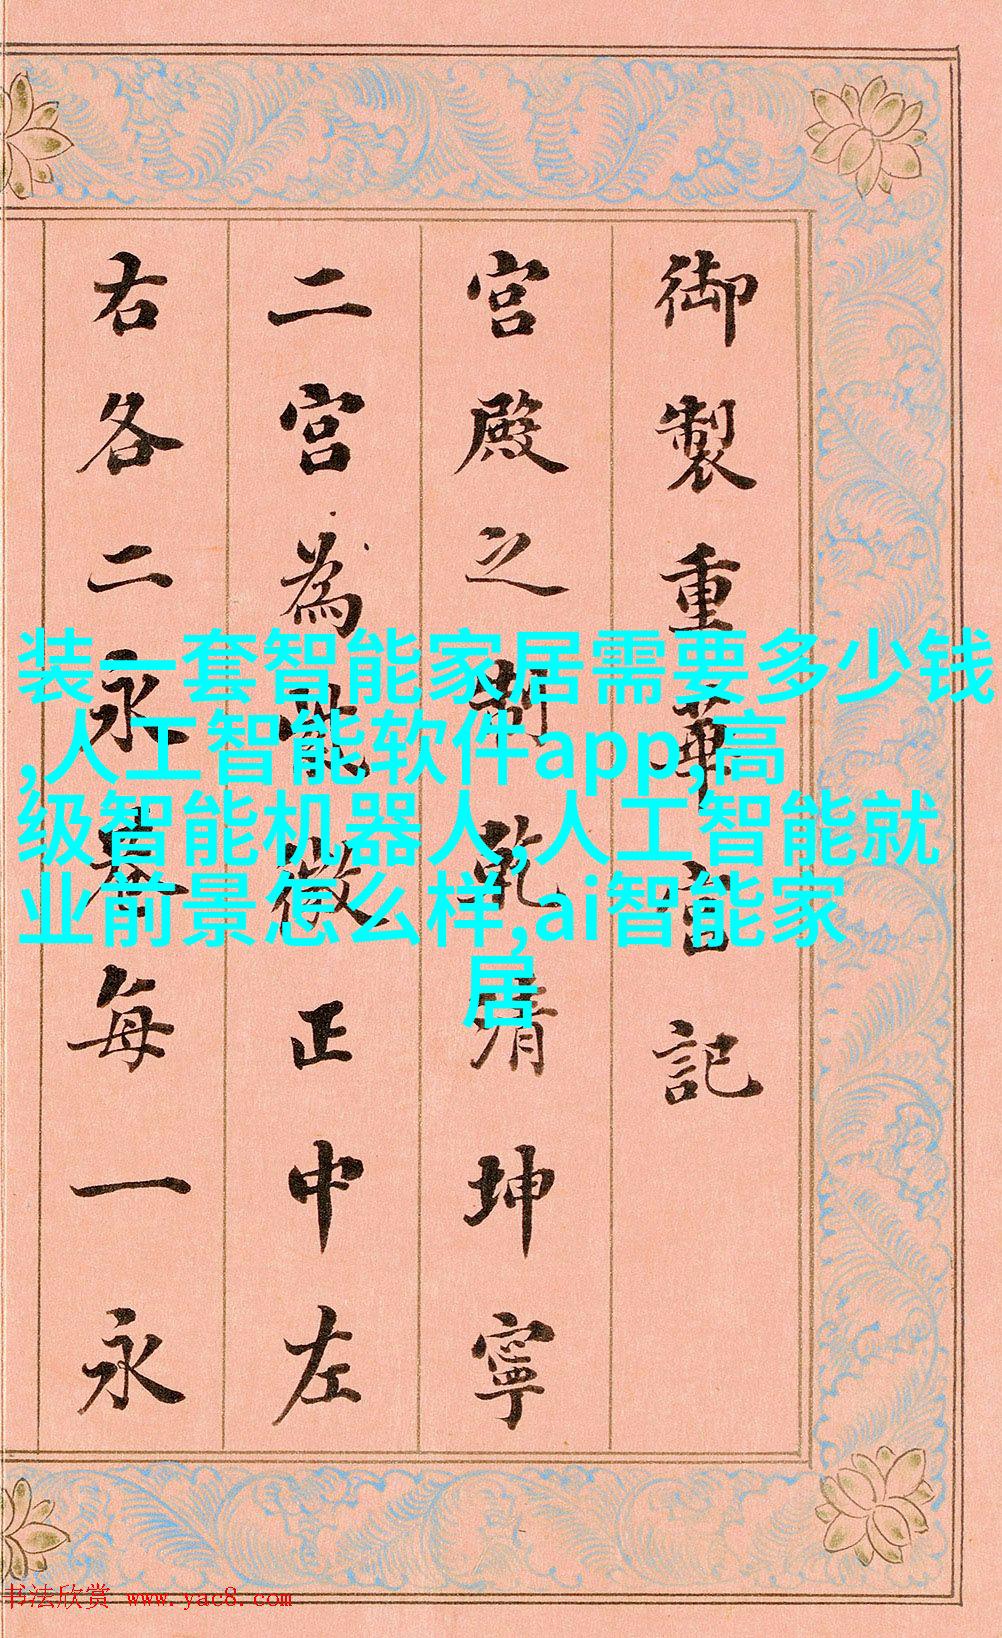 御製重華宮記
宮殿之制乾清坤寧
二宮為紫微正中左
右各二永巷每一永
装一套智能家居需要多少钱
,人工智能软件app,高
级智能机器人,人工智能就
业前景怎么样,ai智能家
居
书法欣赏 www.yac8.com